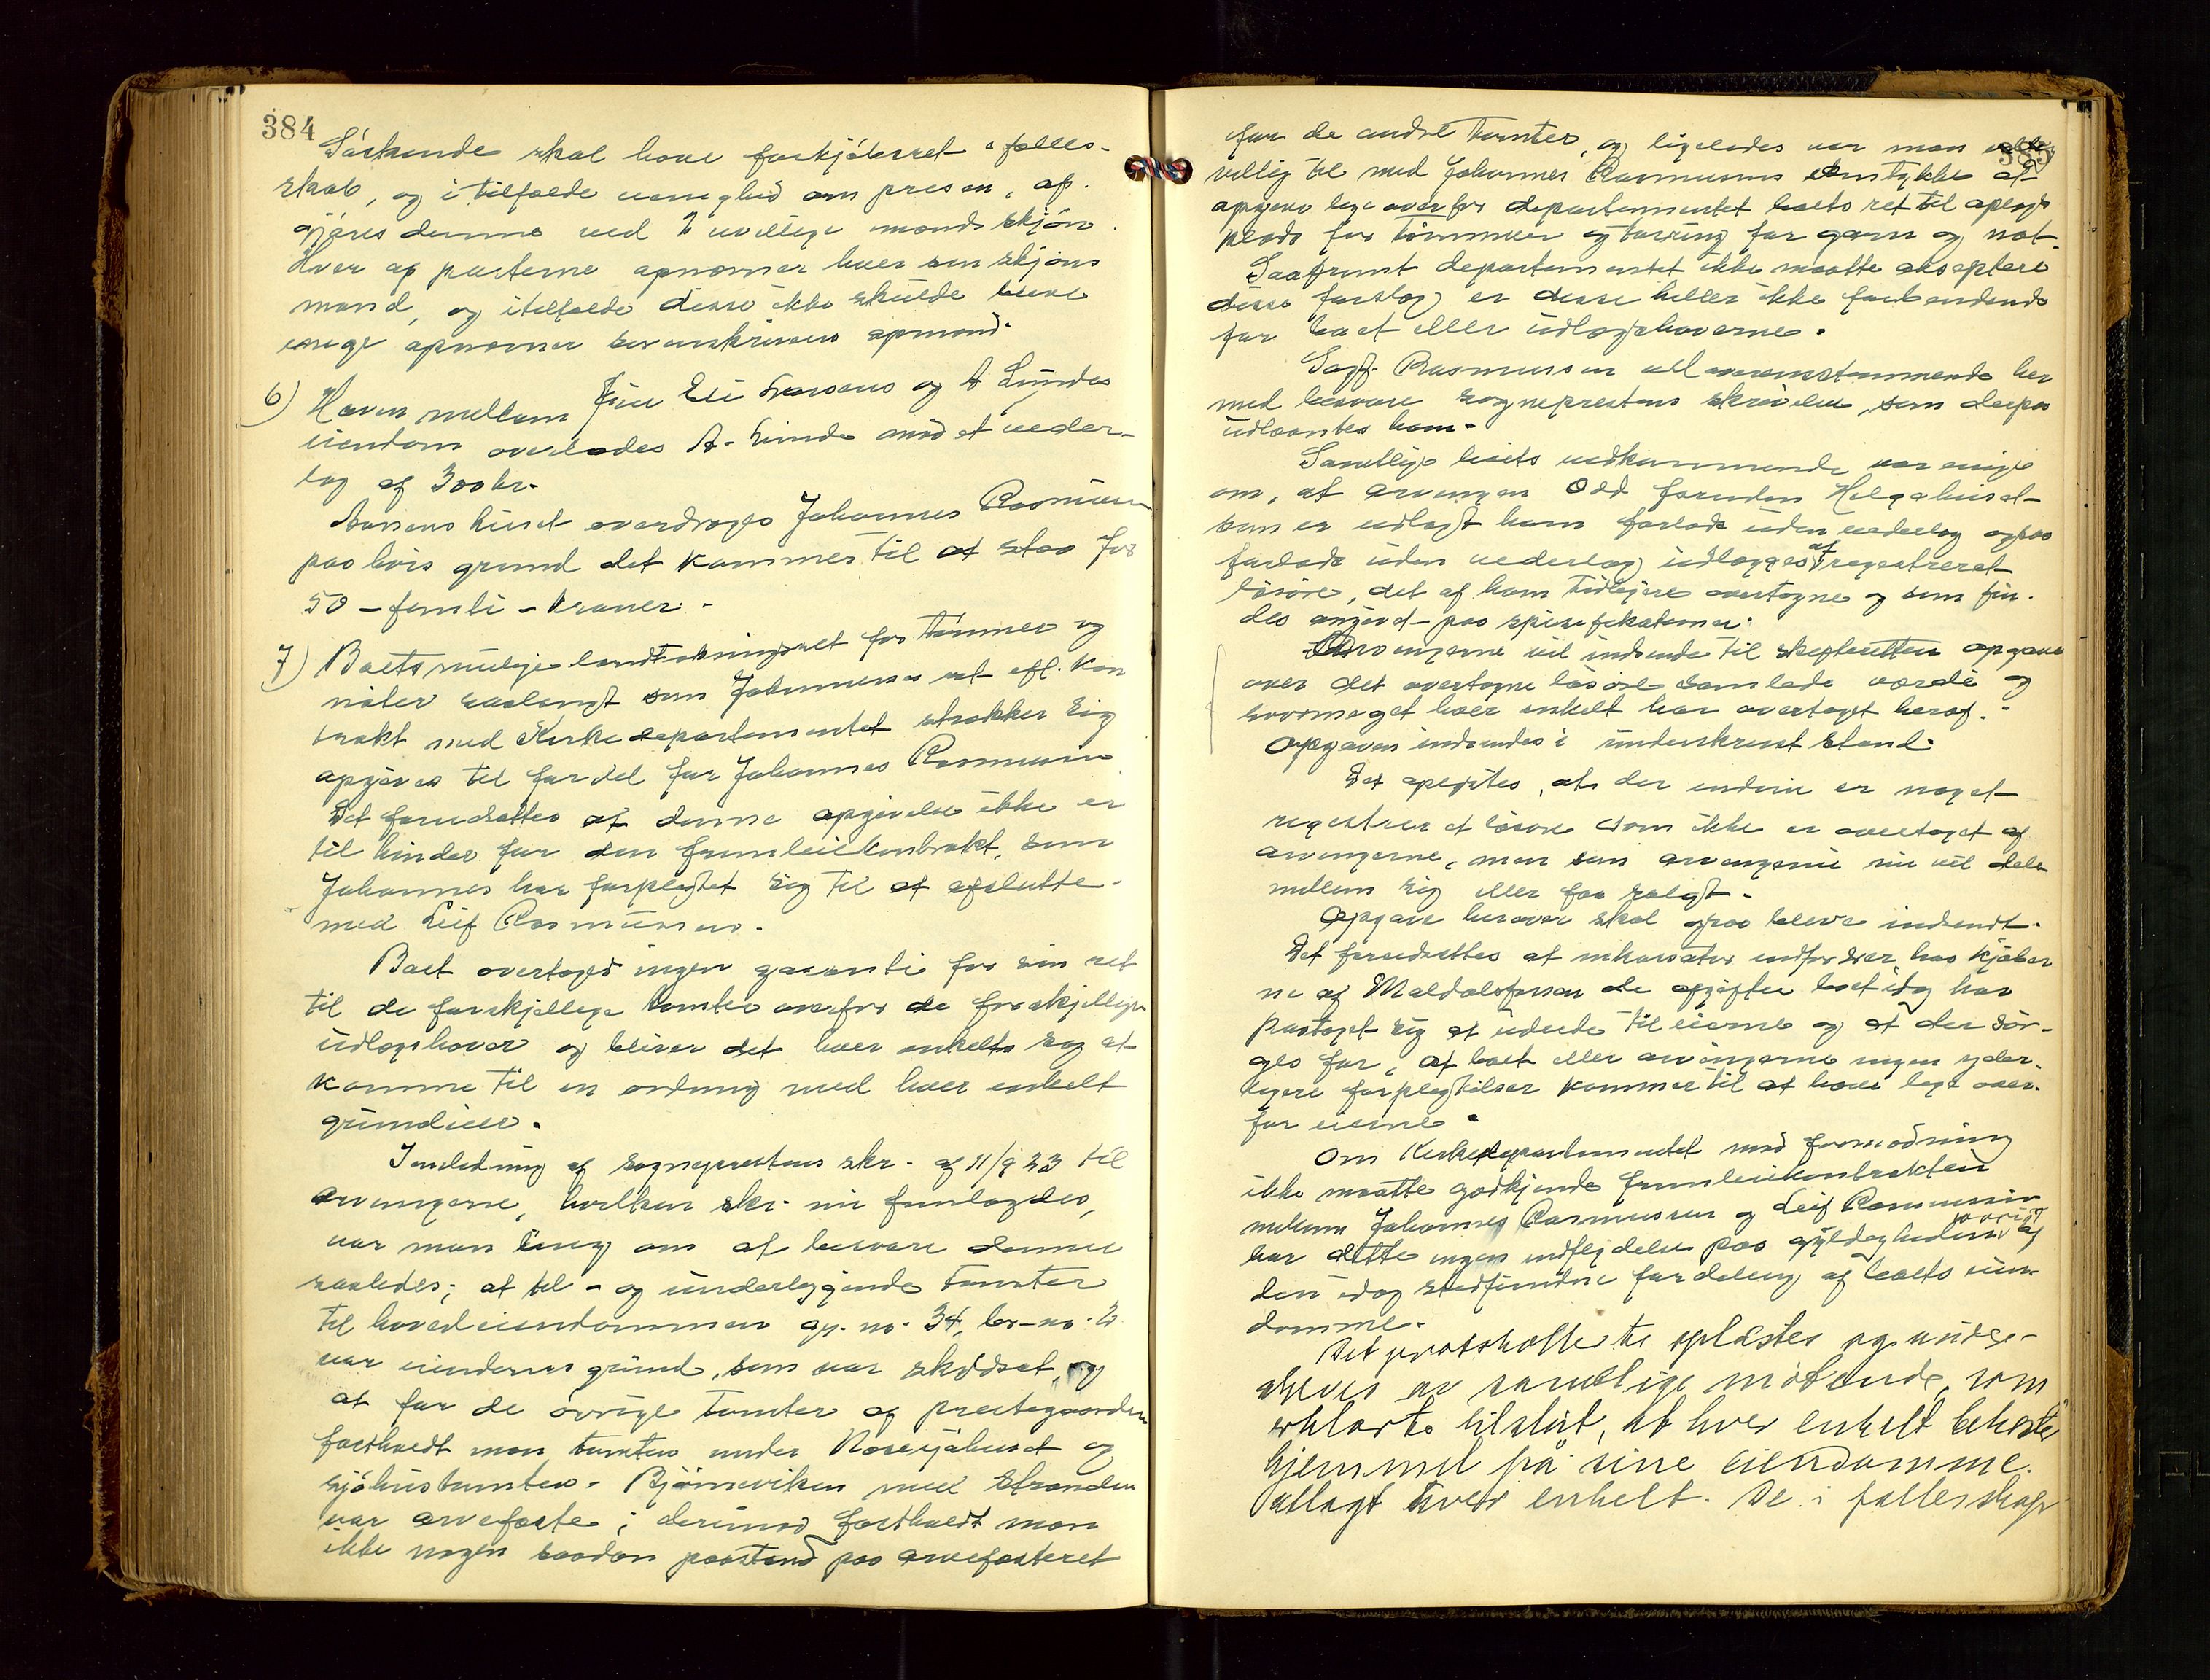 384
Söskende skal have forkjöbsret i fælles-
skab, og i tilfælde uenighed om prisen, af-
gjöres denne ved 2 uvillige mænds skjön.
Hver af parterne opnævner hver sin skjöns
mand, og i tilfælde disse ikke skulde blive
enige opnævner sorenskriveren opmand.
6) Haven mellem Fru Eli Larsens og A Lunds
eiendom overlades A. Lunde mod et veder-
lag af 300 kr.
huset overdrages Johannes Rasmussen
paa hvis grund det kommer til at staa for
50 - femti - kroner.
7) Boets mulige landtøkningsret for tömmer og
nöter saalangt som Johannesens ret efl. kon
trakt med Kirkedepartementet strækker sig
opgives til fordel for Johannes Rasmussen
Det forudsættes at denne opgivelse ikke er
til hinder for den fremleiekontrakt, som
Johannes har forpligtet sig til at afslutte
med Leif Rasmussen.
Boet overtager ingen garanti for sin ret
til de forskjellige tomter overfor de forskjellige
udlægshaver og bliver det hver enkelts sag at
komme til en ordning med hver enkelt
grundeier.
I anledning af sogneprestens skr. af 11/9 23 til
arvingerne, hvilken skr. nu fremlagdes,
var man enig om at besvare denne
saaledes; at til- og underliggende tomter
til hovedeiendommen gr. no. 34, br-no. 2
var eiendoms grund, som var skyldsat, og
at for de övrige tomter og prestegaarden
fastholdt man tomten under Nordsjöhuset og
sjöhustomten. Björneviken med Stranden
var arvefæste; derimod fastholdt man
ikke nogen saadan paastand paa arvefæsteret
385
for de andre tomter, og ligeledes var man
villig til med Johannes Rasmussens samtykke at
opgive lige overfor departementet boets ret til oplags
plads for tömmer og törring for garn og not.
Saafremt departementet ikke maatte akseptere
disse forslag er disse heller ikke forbindende
for boet eller udlægshaverne.
Sagf. Rasmussen vil overensstemmende her
med besvare sogneprestens skrivelse, som derpaa
udlaantes ham.
Samtlige boets vedkommende var enige
om, at arvingen Odd foruden Helgahuset
som er udlagt ham forlods uden vederlag ogsaa
forlods uden vederlag udlægges af registreret
lösöre, det af ham tidligere overtagne og som fin-
des angivet paa spisifikationen.
Arvingerne vil indsende til skifteretten opgave
over det overtagne lösöres samlede værdi og
hvormeget hver enkelt har overtaget heraf.
Opgaven indsendes i underskrevet stand.
Det oplystes, at der endnu er noget
registreret lösöre som ikke er overtaget af
arvingerne, men som arvingerne nu vil dele
mellem sig eller faa solgt.
Opgave herover skal ogsaa blive indsendt.
Det forudsættes at inkassator indfordrer hos kjöber
ne af Maldalsfossen de afgifter boet idag har
paataget sig at udrede til eierne og at der sör-
ges for, at boet eller arvingerne ingen yder-
ligere forpligtelser kommer til at have lige over-
for eierne.
Om Kirkedepartementet mod formodning
ikke maatte godkjende fremleiekontrakten
mellem Johannes Rasmussen og Leif Rasmussen
har dette ingen indflydelse paa gyldigheden iövrigt af
den idag stedfundne fordeling af boets eien-
domme.
Det protokollerte oplæstes og vedto-
ges av samtlige mötende, som
erklærte tilslut, at hver enkelt bekoste
hjemmel på sine eiendomme.
utlagt hver enkelt. De i fælleskap